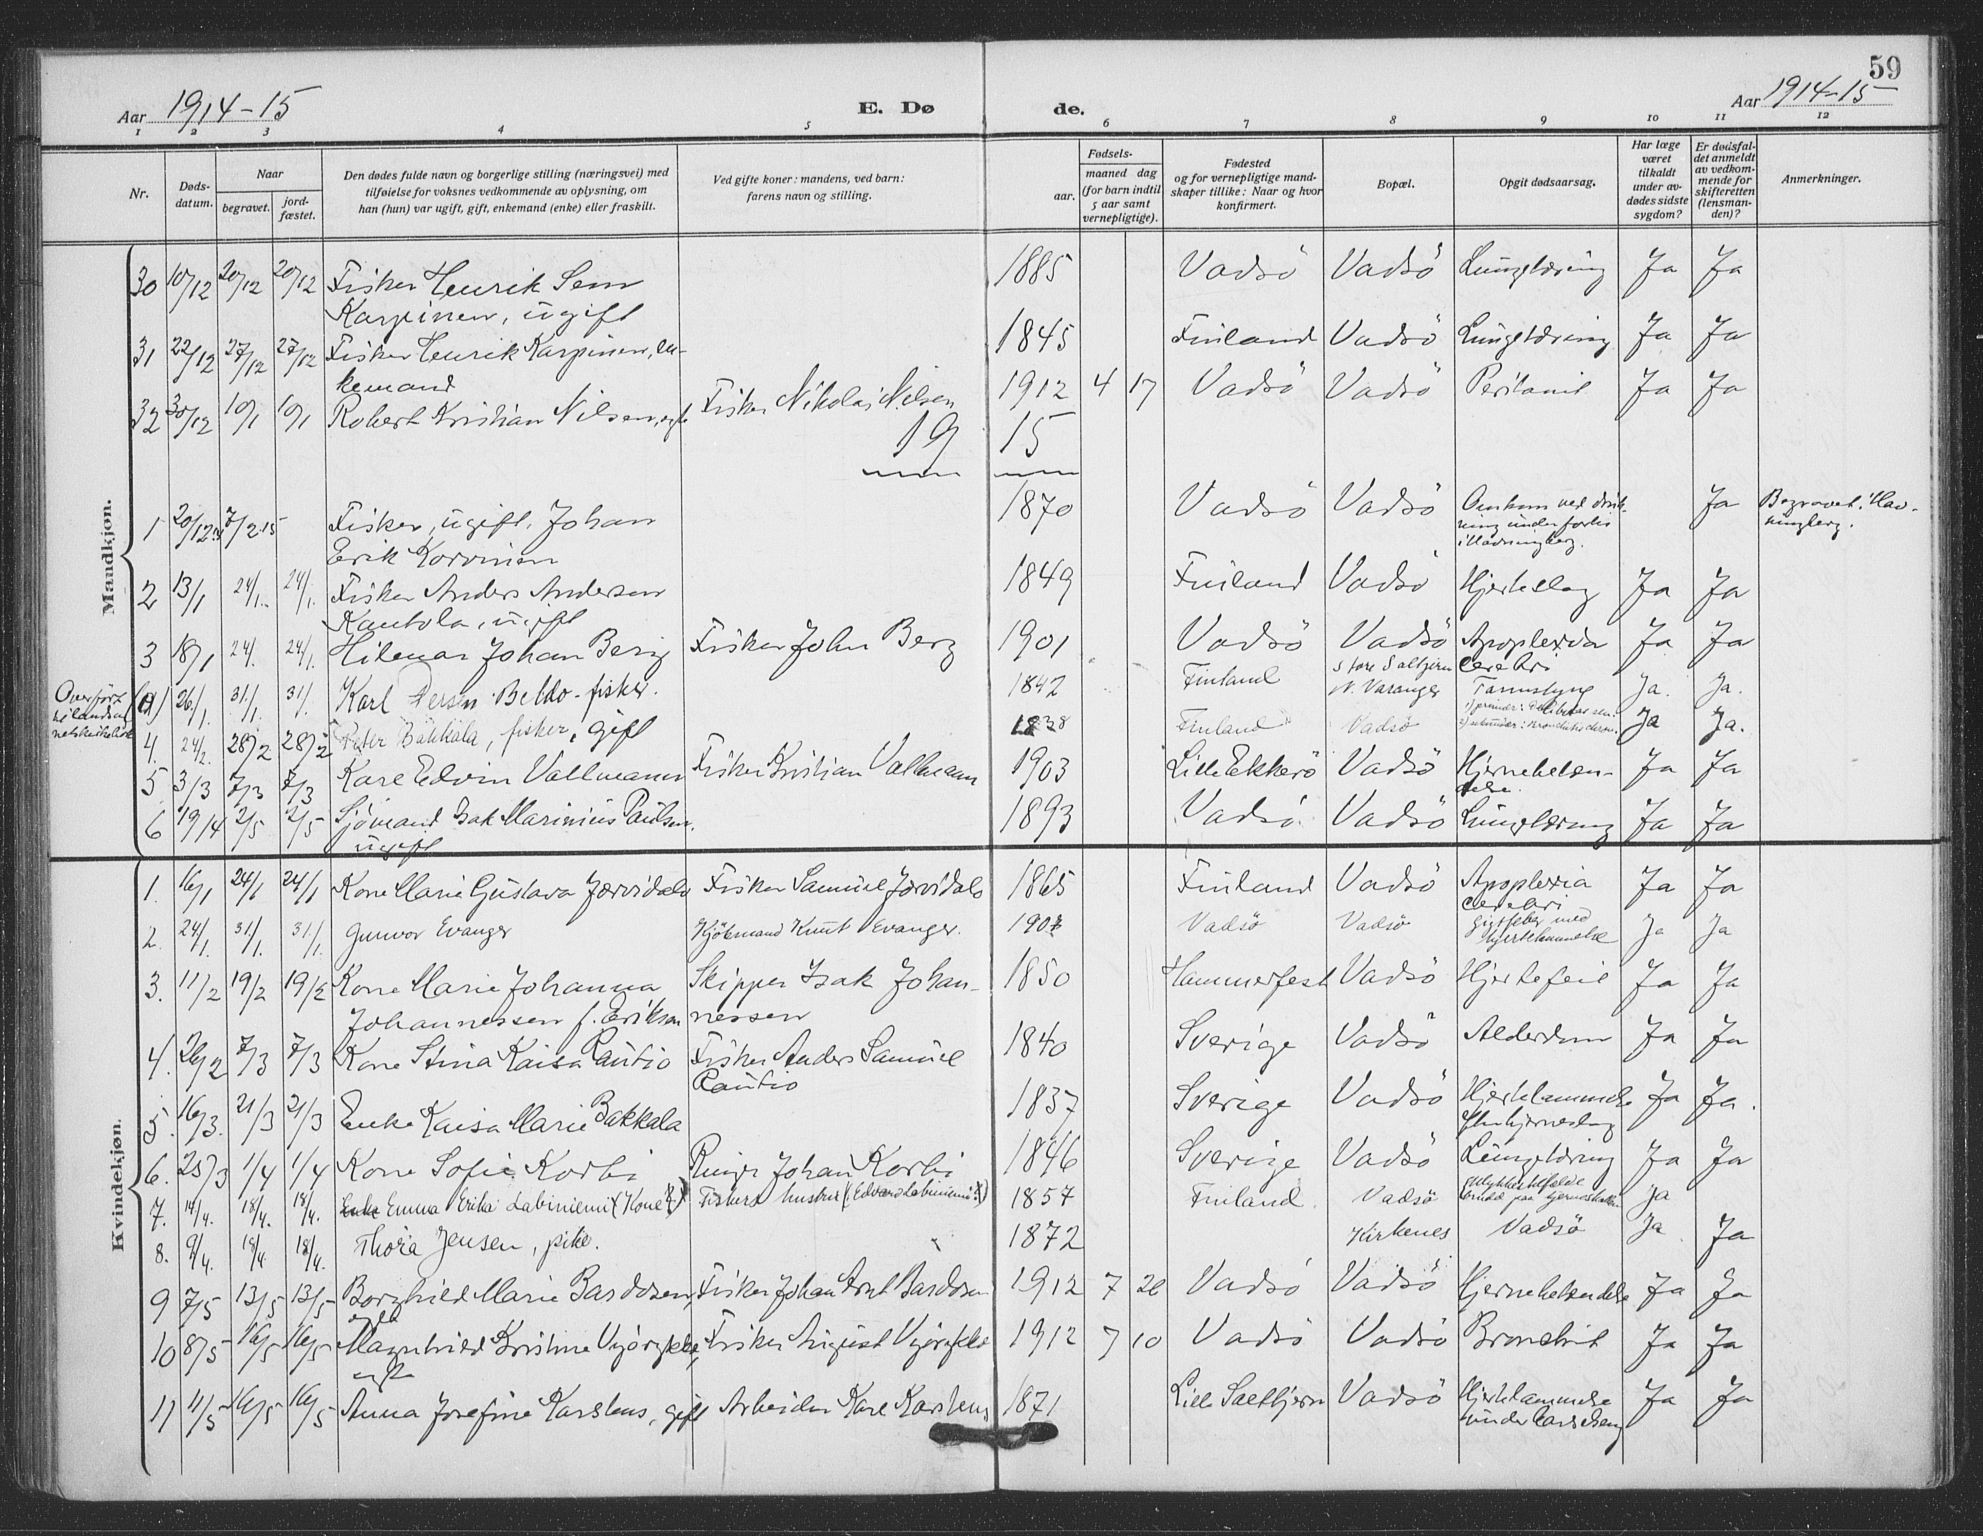 59
Aar 1914-15 E. Dø de. Aar 1914-15
1 2 3 4 5 6 7 8 9 10 11 12
Nr.
Døds-
datum.
Naar
begravet.
jord-
fæstet.
Den dødes fulde navn og borgerlige stilling (næringsvei) med
tilføielse for voksnes vedkommende av oplysning, om
han (hun) var ugift, gift, enkemand (enke) eller fraskilt.
Ved gifte koner: mandens, ved barn:
farens navn og stilling.
Fødsels-
aar.
maaned dag
(for barn indtil
5 aar samt
vernepligtige).
Fødested
og for vernepligtige mand-
skaper tillike: Naar og hvor
konfirmert.
Bopæl.
Opgit dødsaarsag.
Har læge
været
tilkaldt
under av-
dødes sidste
sygdom?
Er dødsfal-
det anmeldt
av vedkom-
mende for
skifteretten
(lensman-
den)?
Anmerkninger.
Mandkjøn.
30 10/12 20/12 20/12 Fisker Henrik Sem 1885 Vadsö Vadsö Lungetæring Ja Ja
Karpinen, ugift
31 22/12 27/12 27/12 Fisker Henrik Karpinen, en- 1845 Finland Vadsö Lungetæring Ja Ja
kemand
32 30/12 10/1 10/1 Robert Kristian Nilsen, Fisker Nikolai Nilsen 1912 4 17 Vadsö Vadsö Peritonit Ja Ja
19 15
1 20/12 7/2 15 Fisker, ugift, Johan 1870 Vadsö Vadsö Omkom ved druk- Ja Begravet i Hav-
Erik Korvinen ning under forlis ningberg.
i Havningberg.
2 13/1 24/1 24/1 Fisker Anders Andersen 1849 Finland Vadsö Hjerteslag Ja Ja
Kantola, ugift
3 18/1 24/1 24/1 Hilmar Johan Berg Fisker John Berg 1901 Vadsö Vadsö Apoplexia Ja Ja
cerebri
Overført
(4) 26/1 31/1 31/1 Karl Persen Beldo - fisker. 1842 Finland Store Salttjern
N. Varanger Ja. Ja.
4. 24/2 28/2 28/2 Peter Bakkala, fisker, gift 1838 Finland Vadsö Ja Ja.
5 3/3 7/3 7/3 Karl Edvin Vallmann Fisker Kristian Vallmann 1903 Lille Ekkerö Vadsö Hjernebeten- Ja Ja
delse.
6 19/4 2/5 2/5 Sjömand Isak Marinius Paulsen, 1893 Vadsö Vadsö Lungetæring Ja Ja
ugift
Kvindekjøn.
1. 16/1 24/1 24/1 Kone Marie Gustava Jærvidalo Fisker Samuel Jærvidalo 1865 Finland Vadsö Apoplexia Ja Ja
cerebri
2. 24/1 31/1 31/1 Gunvor Evanger Kjöbmand Knut Evanger. Vadsö Vadsö Gigtfeber med Ja Ja
hjertelammelse
3. 11/2 19/2 19/2 Kone Marie Johanna Skipper Isak Johan- 1850 Hammerfest Vadsö Hjertefeil Ja Ja
Johannessen f. Erikson nessen
4. 26/2 7/3 7/3 Kone Stina Kaisa Rautio Fisker Anders Samuel 1840 Sverige Vadsö Alderdom Ja Ja
Rautio
5. 16/3. 21/3 21/3 Enke Kaisa Marie Bakkala 1837 Sverige Vadsö Hjertelammelse Ja Ja.
6. 25/3 1/4 1/4 Kone Sofie Korbi Johan Korbi 1846 Sverige Vadsö Lungetæring Ja Ja
7. 14/4. 18/4. 18/4. Enke Emma Erika Labiniemi (Kone?) Fiskers hustru (Edvard Labiniemi?) 1857 Finland. Vadsö Ulykkestilfælde Ja
8. 9/4. 18/4 18/4. Thora Jensen, pike. 1872 Kirkenes Vadsö Ja Ja
9 7/5 13/5 13/5 Borghild Marie Bardosen, Fisker Johan Arnt Bardosen 1912 7 20 Vadsö Vadsö Hjernebetændelse Ja Ja
10 8/5 16/5 16/5 Magnhild Kristine Fisker August 1912 7 10 Vadsö Vadsö Bronchit Ja Ja
11 11/5 16/5 16/5 Anna Josefine Karstens, gift Arbeider Karl Karstens 1871 Lille Salttjern Vadsö Hjertelammelse Ja Ja
under barselseng